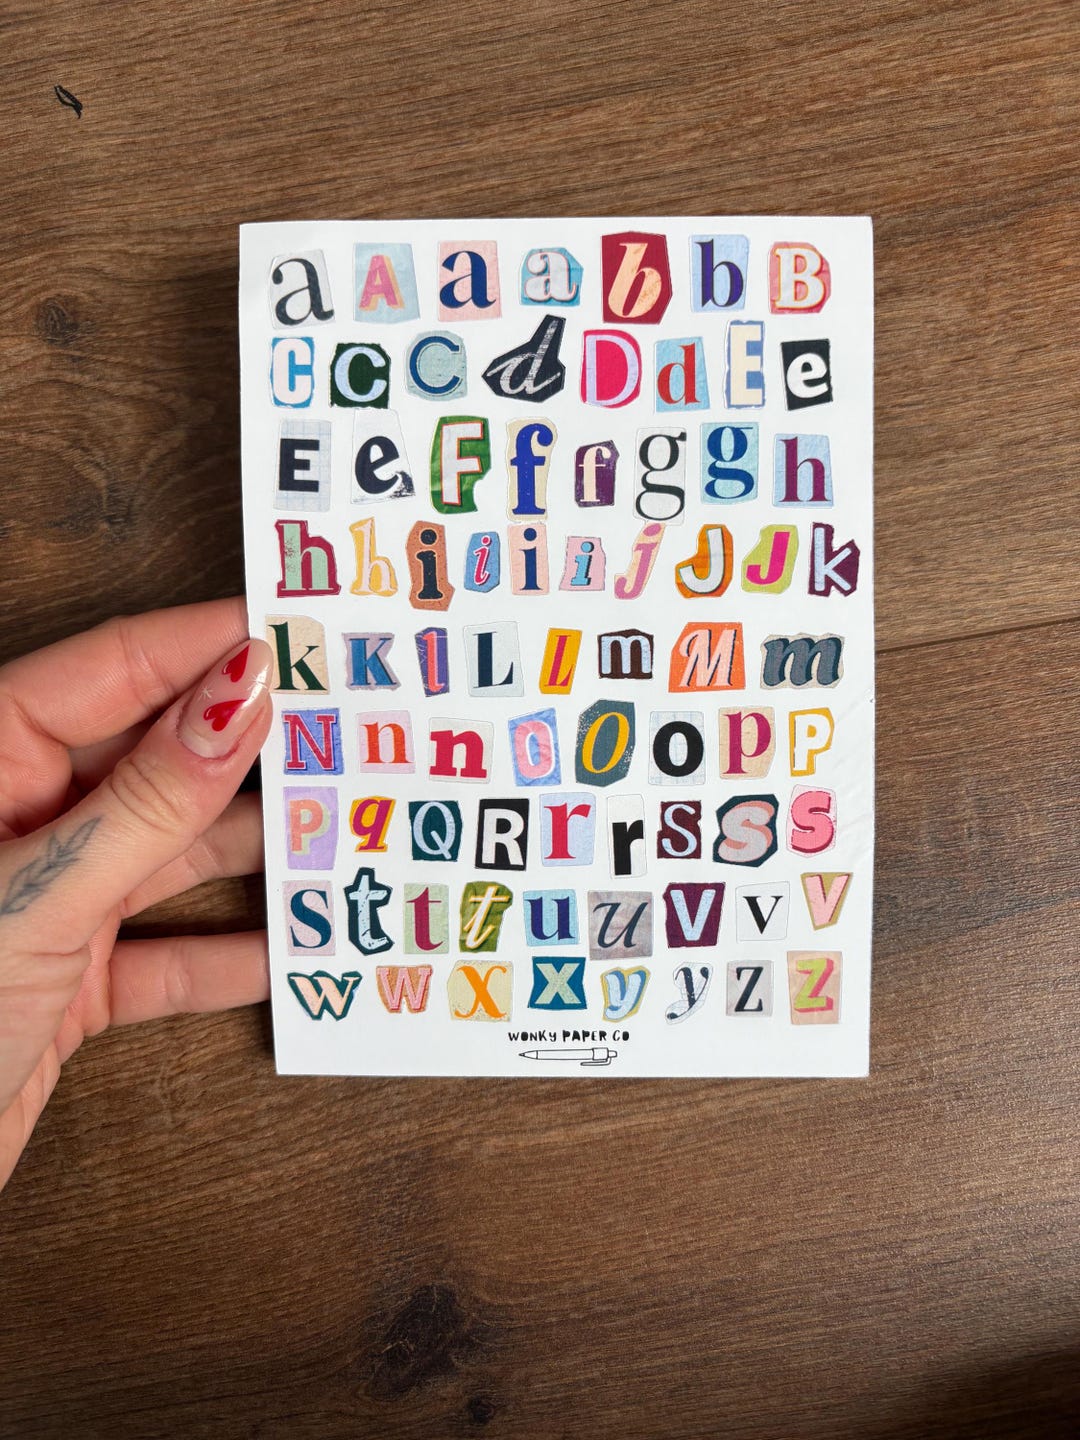 a A a a b b B
C C C d D d E e
E e F f f g g h
h h i i i i j J J k
k K l L L m M m
N n n O O o p P
P q Q R r r s S S
S t t t u u v v V
w W X X y y z Z
WONKY PAPER CO